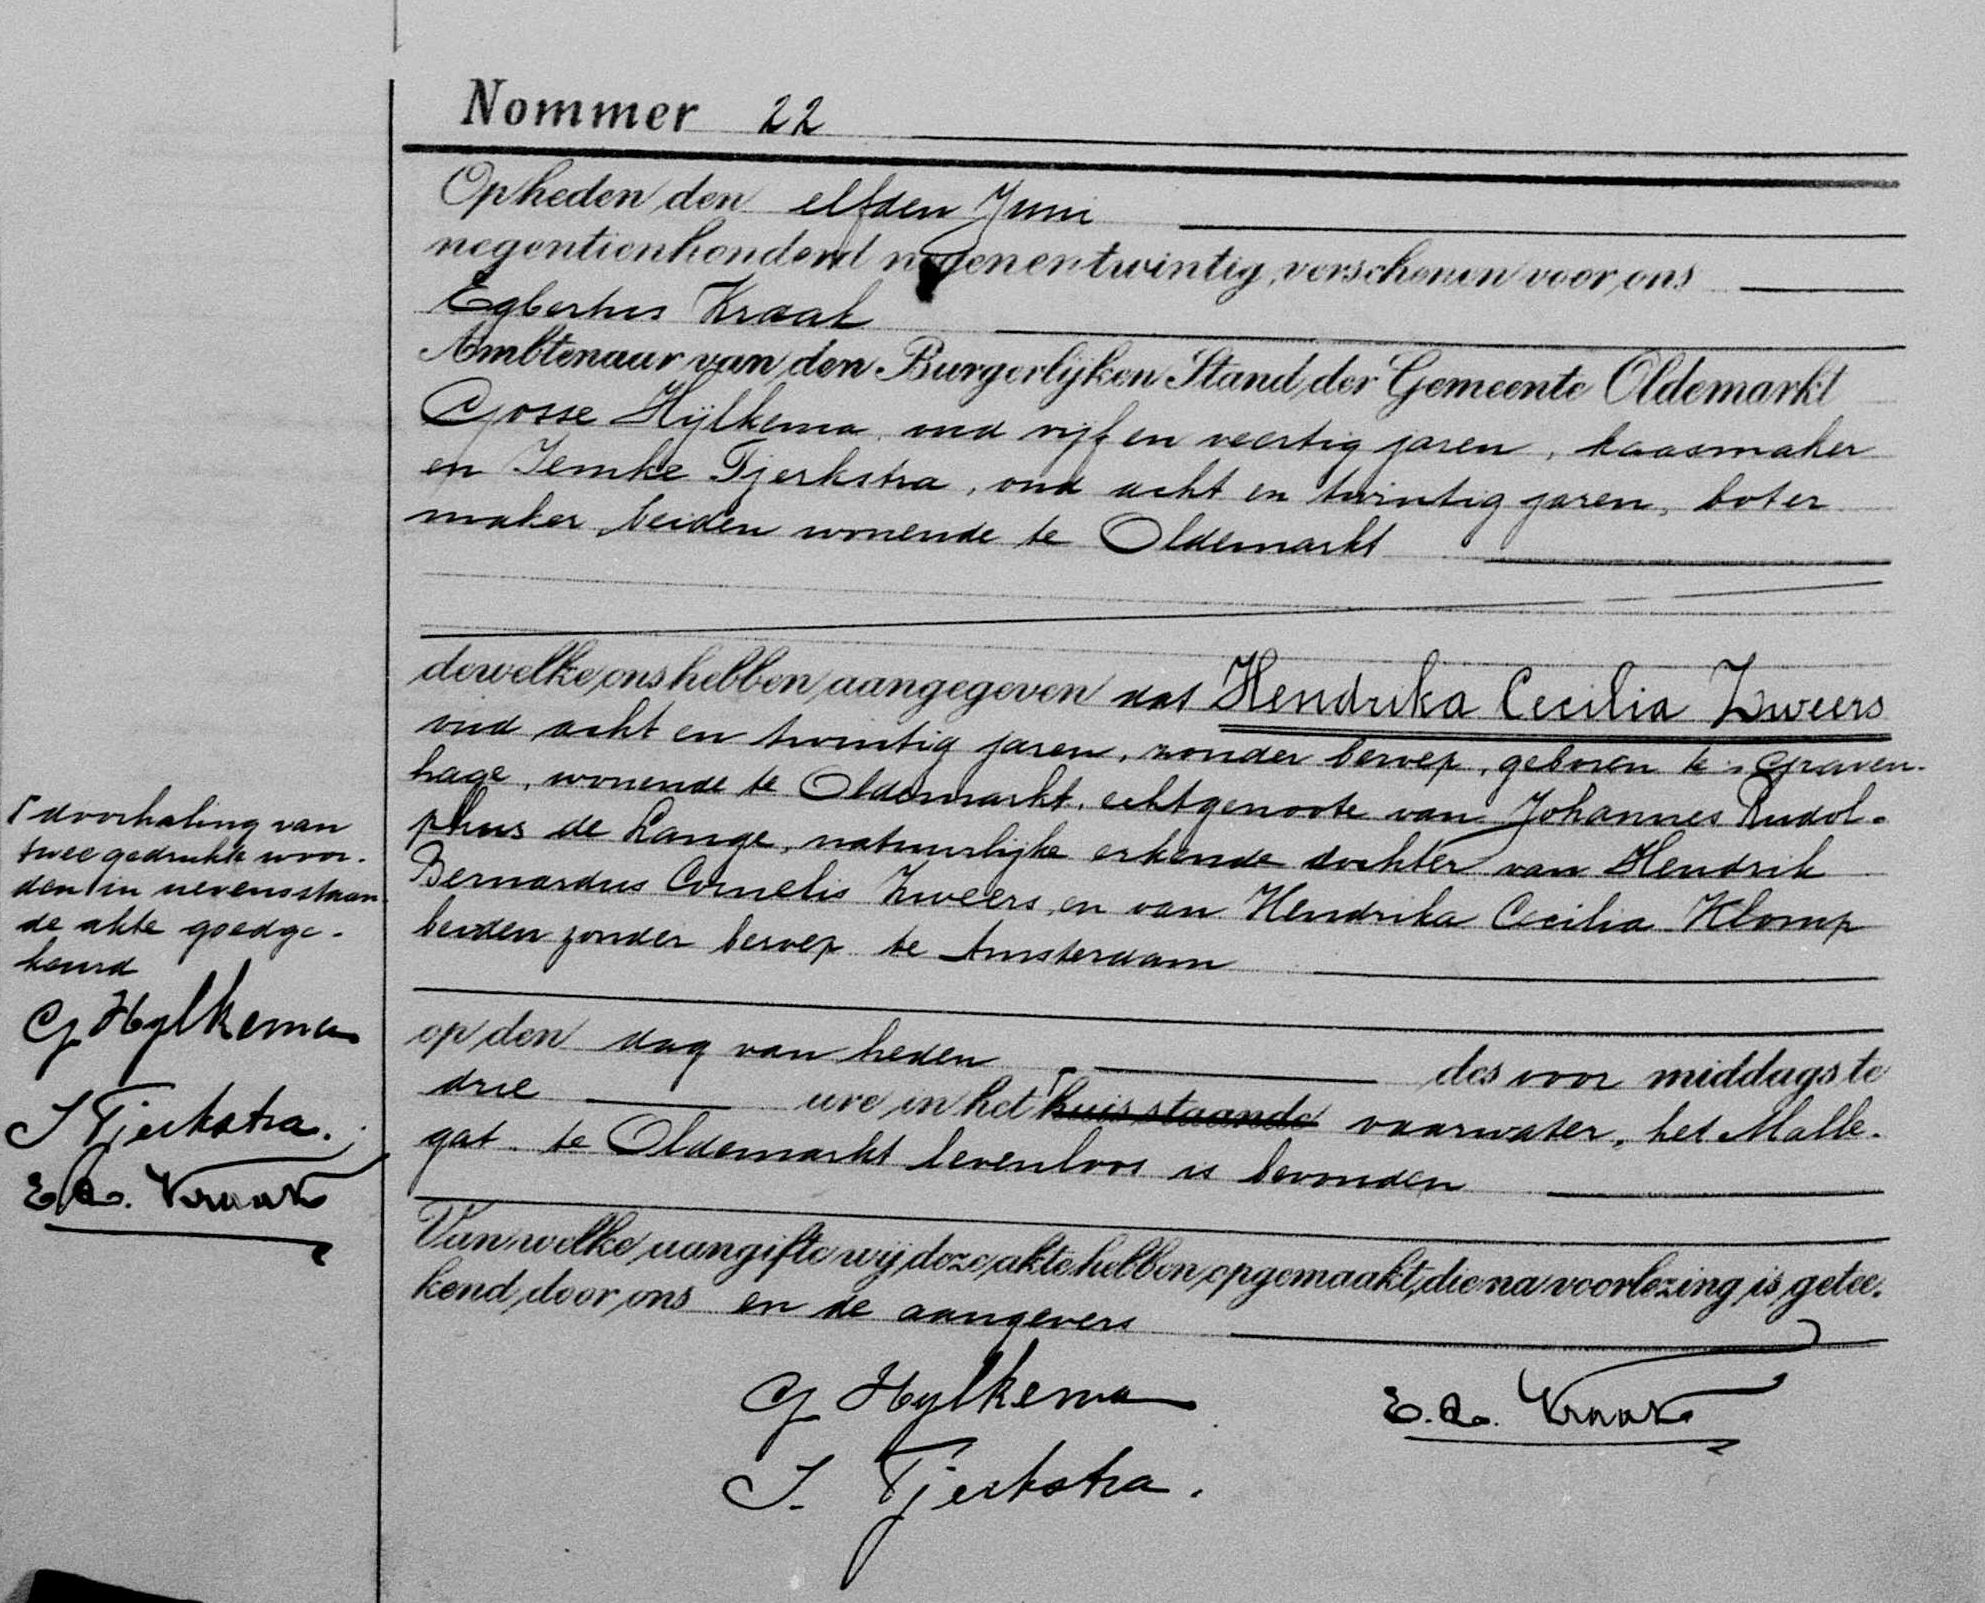 Nommer 22
Op heden den elfden Juni
negentienhonderd negenentwintig, verschenen voor ons
Egbertus Kraak
Ambtenaar van den Burgerlijken Stand der Gemeente Oldemarkt
Gosse Hijlkema, oud vijf en veertig jaren, kaasmaker
en Jemke Tjerkstra, oud acht en twintig jaren, boter
maker, beiden wonende te Oldemarkt
dewelke ons hebben aangegeven dat Hendrika Cecilia Zweers
oud acht en twintig jaren, zonder beroep, geboren te 's Graven-
hage, wonende te Oldemarkt, echtgenoote van Johannes Rudol-
phus de Lange, natuurlijke erkende dochter van Hendrik
Bernardus Cornelis Zweers, en van Hendrika Cecilia Klomp
beiden zonder beroep te Amsterdam
op den dag van heden des voor middags te
drie ure in het huis staande vaarwater, het Malle-
gat, te Oldemarkt levenloos is bevonden
Van welke aangifte wij deze akte hebben opgemaakt, die na voorlezing is getee-
kend door ons en de aangevers
G Hylkema
E. A. Kraak
J. Tjerkstra.
doorhaling van
twee gedrukte woor-
den in nevensstaan
de akte goedge-
keurd
G Hylkema
J Tjerkstra.
E. A. Kraak